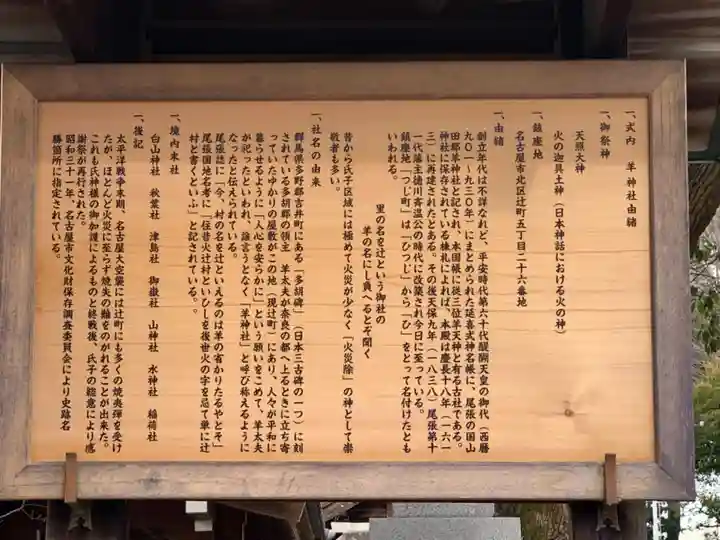 一、式内　羊神社由緒
一、御祭神
天照大神
火の迦具土神（日本神話における火の神）
一、鎮座地
名古屋市北区辻町五丁目二十六番地
一、由緒
創立年代は不詳なれど、平安時代第六十代醍醐天皇の御代（西暦
九〇一～九三〇年）にまとめられた延喜式神名帳に、尾張の国山
田郡羊神社と記され、本国帳に従三位羊天神と有る古社である。
神社に保存されている棟札によれば、本殿は慶長十八年（一六一
三）に再建されたとある。その後天保九年（一八三八）尾張第十
一代藩主徳川斉温公の時代に改築され今日に至っている。
鎮座地「つじ町」は「ひつじ」から「ひ」をとって名付けたとも
いわれる。
里の名を辻という御社の
羊の名にし負へるとぞ聞く
昔から氏子区域には極めて火災が少なく「火災除」の神として崇
敬者も多い。
一、社名の由来
群馬県多野郡吉井町にある「多胡碑」（日本三古碑の一つ）に刻
されている多胡郡の領主　羊太夫が奈良の都へ上るときに立ち寄
っていたゆかりの屋敷がこの地（現辻町）にあり、人々が平和に
暮らせるように「人心を安らかに」という願いをこめて、羊太夫
が祀ったといわれ、誰言うとなく「羊神社」と呼び称えるように
なったと伝えられている。
尾張誌に「今、村の名を辻といえるのは羊の省かりたるやとぞ」
尾張国地名考に「往昔火辻村といひしを後世火の字を忌て単に辻
村と書くといふ」と記されている。
一、境内末社
白山神社　秋葉社　津島社　御嶽社　山神社　水神社　稲荷社
一、後記
太平洋戦争末期、名古屋大空襲には辻町にも多くの焼夷弾を受け
たが、ほとんど火災に至らず焼失の難をのがれることが出来た。
これも氏神様の御加護によるものと終戦後、氏子の総意により感
謝祭が再行された。
昭和三十一年、名古屋市文化財保存調査委員会により史跡名
勝箇所に指定されている。